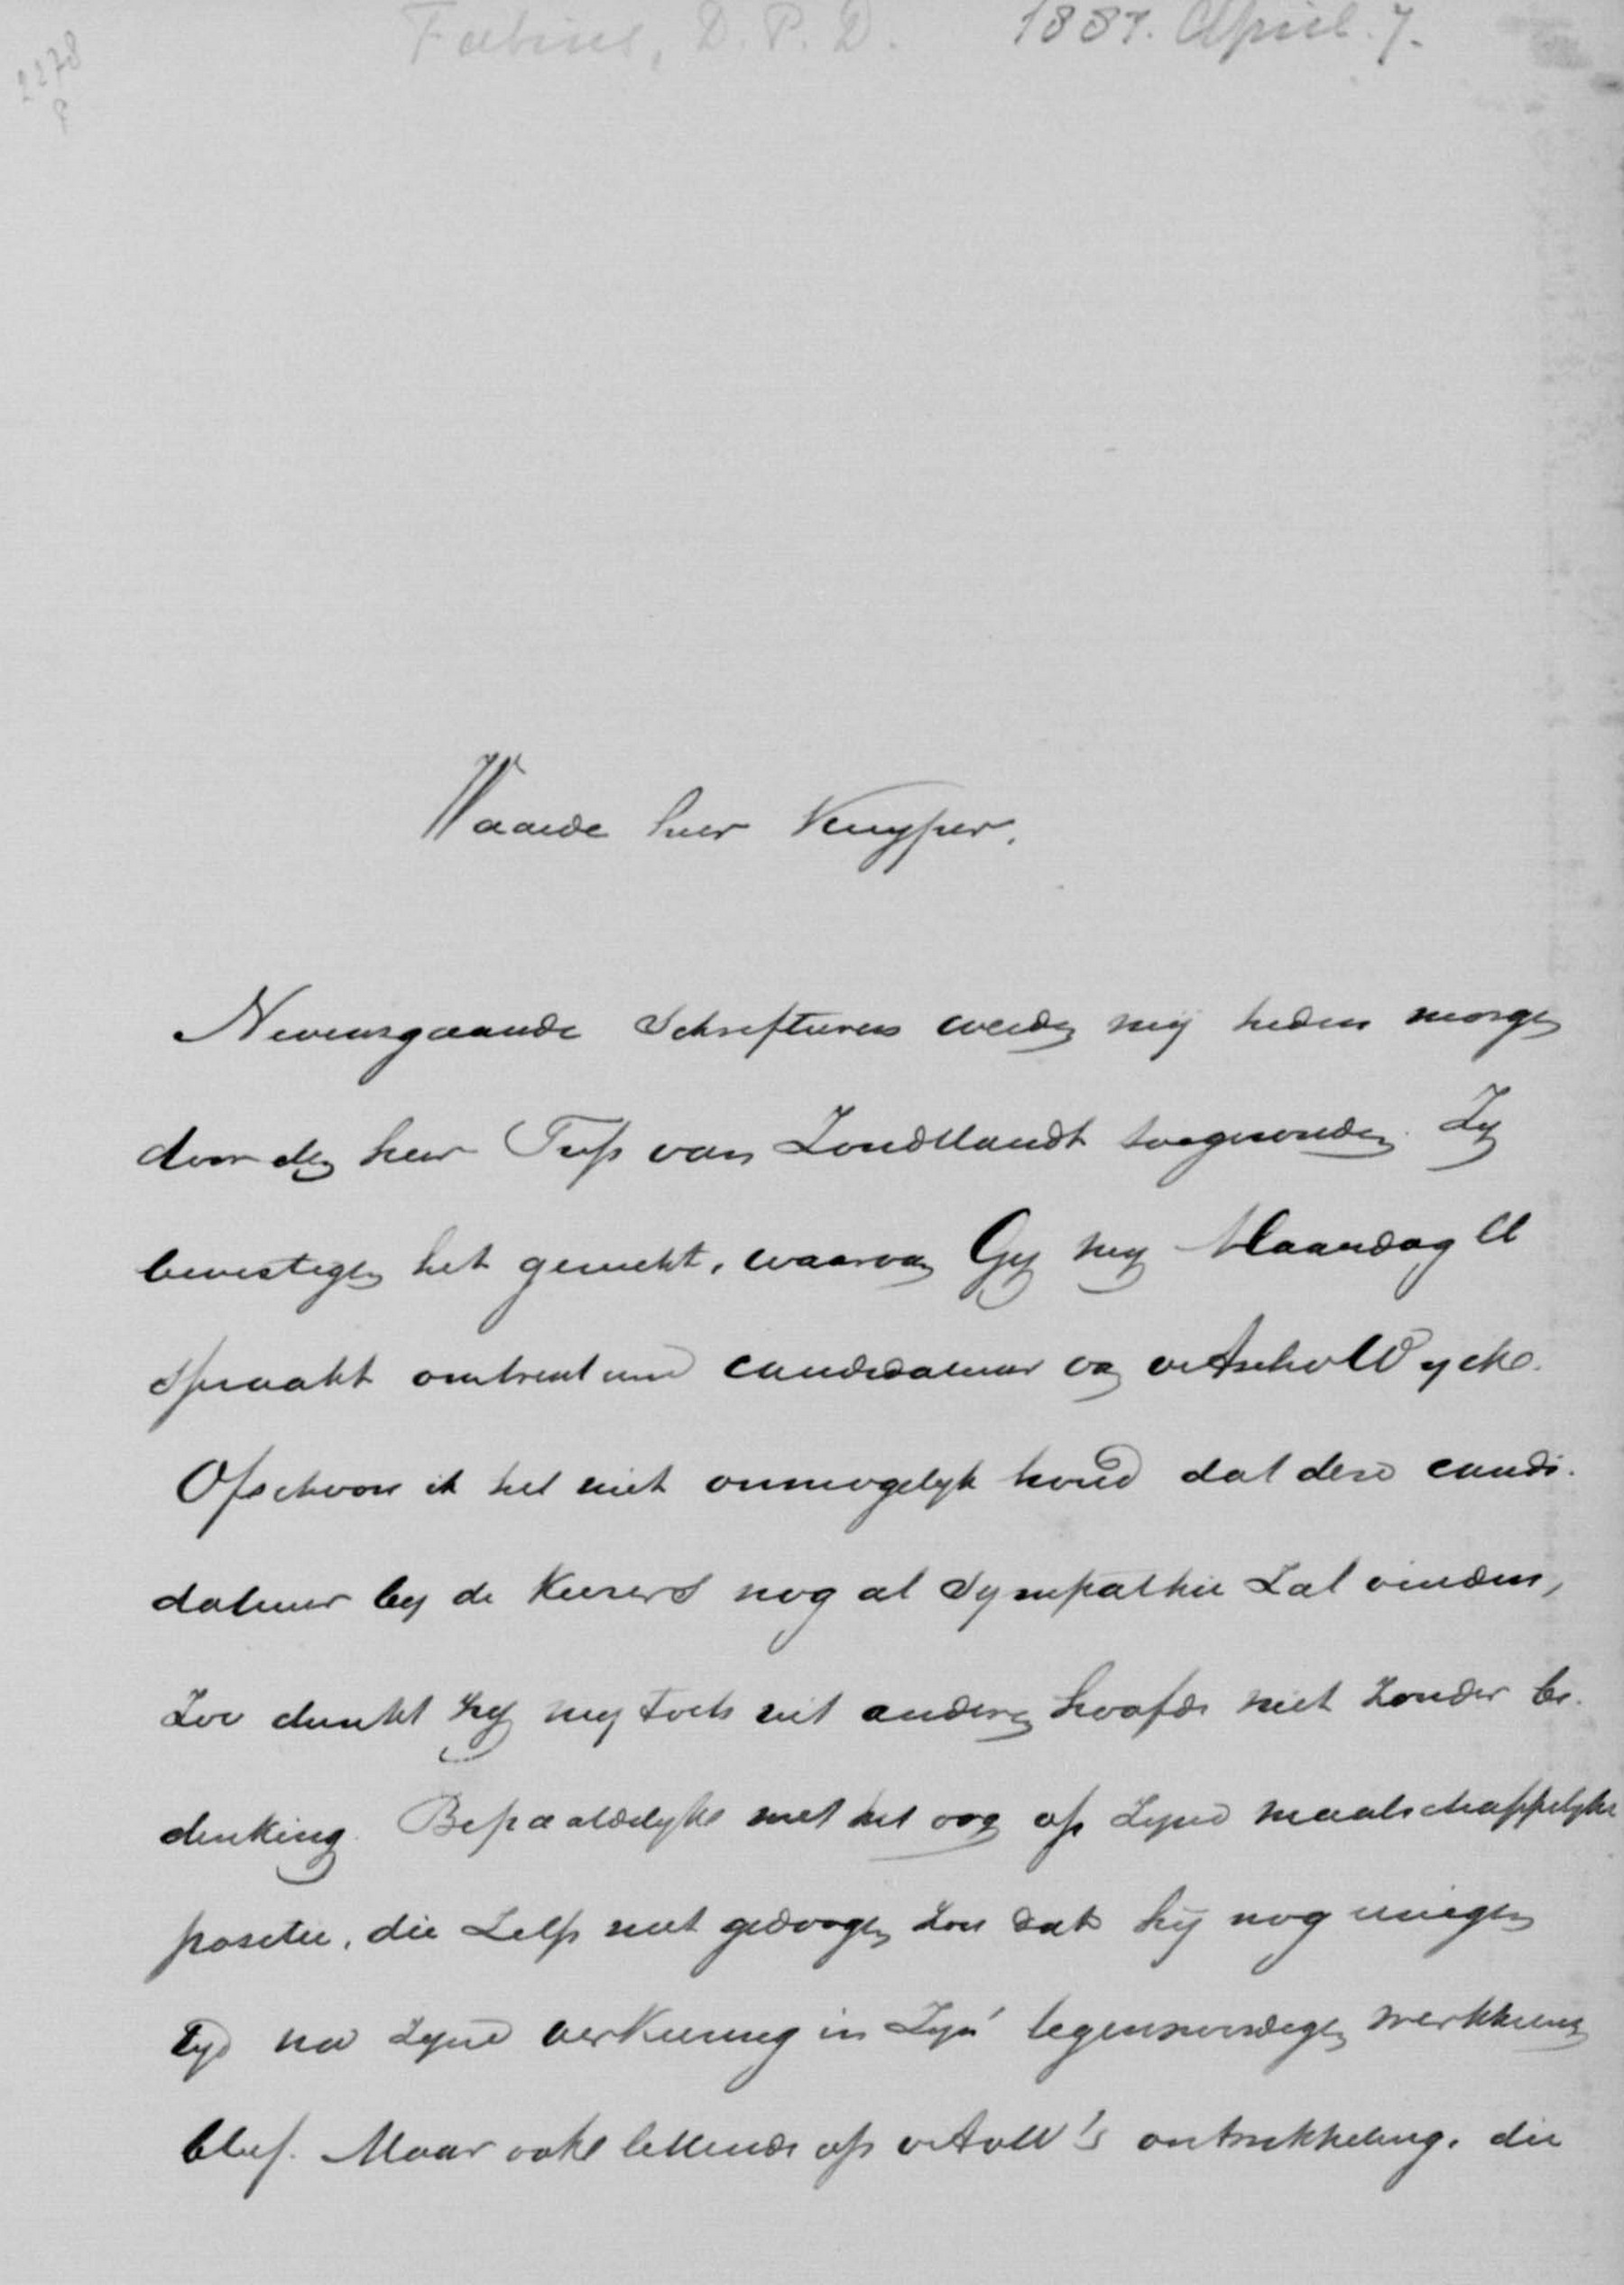 Fabius, D. P. D. 1887. April. 7.
2278
P
Waarde heer Kuyper.
Nevensgaande Schrifturen werden mij heden morgen
door den heer Tuss van Zondtlandt toegezonden. Zy
bevestigen het gerucht, waarvan Gy my Maandag ll
spraakt omtrent une candidatuur van v Asch v Wyck.
Ofschoon ik het niet onmogelyk houd dat deze candi-
datuur by de kiezers nog al Sympathie Zal vinden,
Zoo dunkt hy my toch uit anderen hoofde niet Zonder be-
denking. Bepaaldelyk met het oog op Zyne maatschappelyke
positie, die Zelfs niet gedoogen Zou dat hy nog eenigen
tyd na Zyne verkiezing in Zyn tegenwoordigen werkkring
bleef. Maar ook lettende op v A v W's ontwikkeling, die